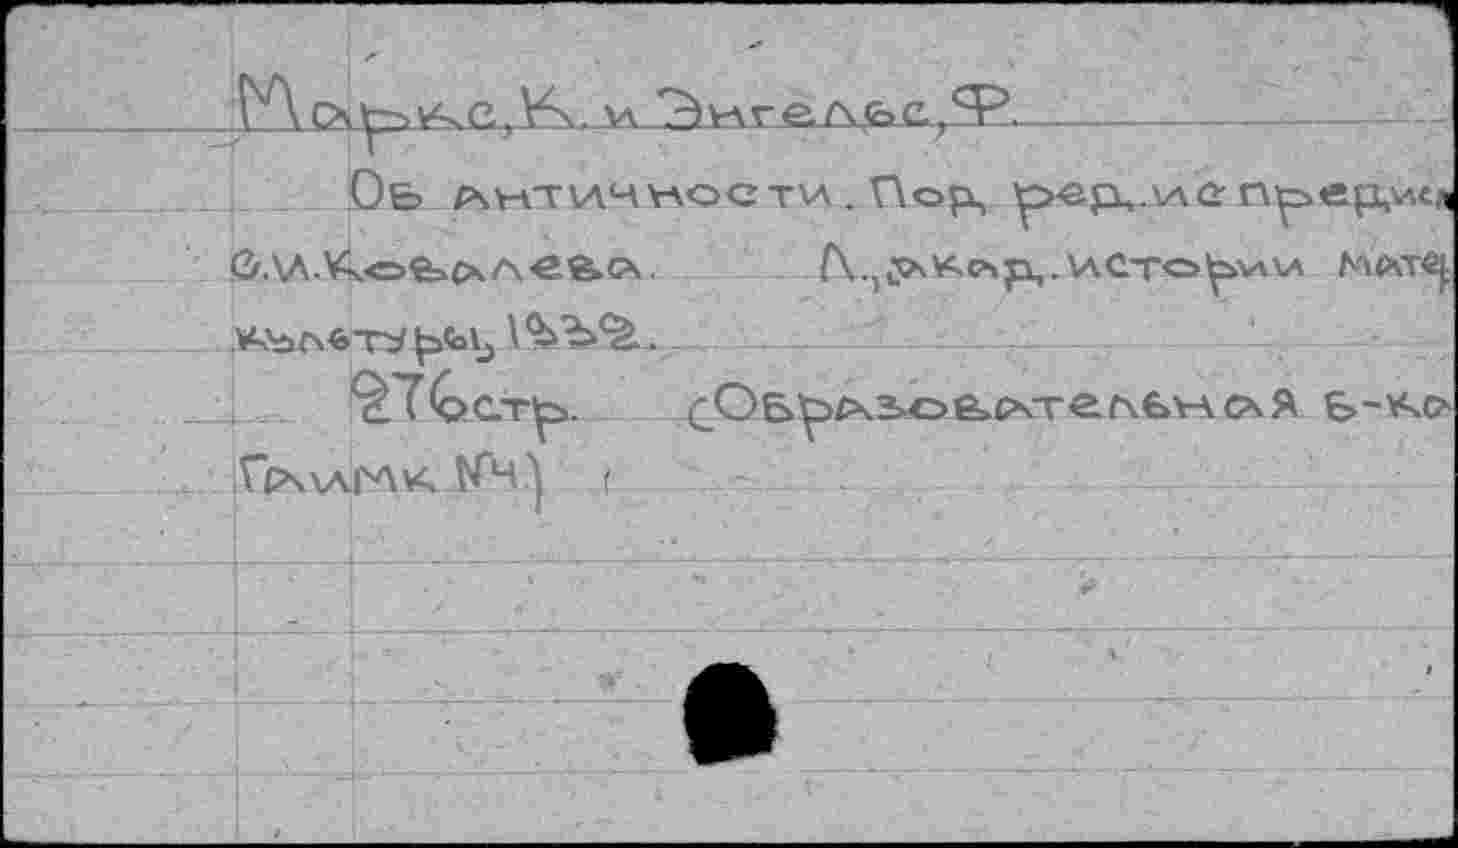 Маркс,К. и Энгельс,Ф.
Об античности. Под ред. и с предис
С.И.Ковалева. Л., акад. истории матер
культуры, 1932.
276 стр. (Образовательная б-ка
Гаимк №4)